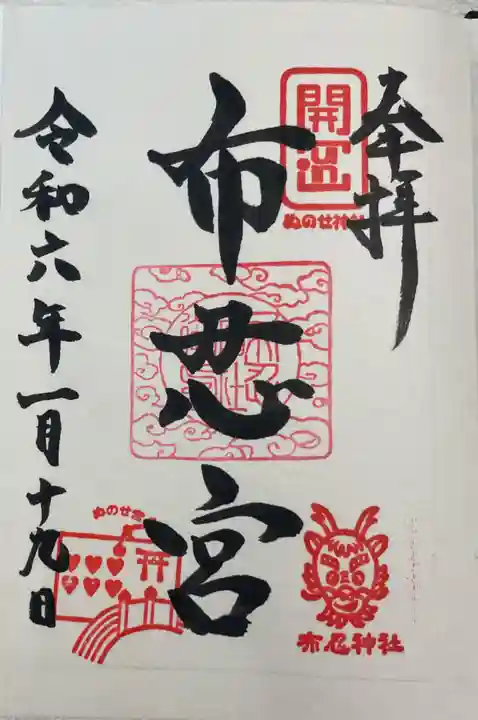 奉拝
開運
ぬのせ神社
布忍宮
令和六年一月十九日
ぬのせ宮
布忍神社